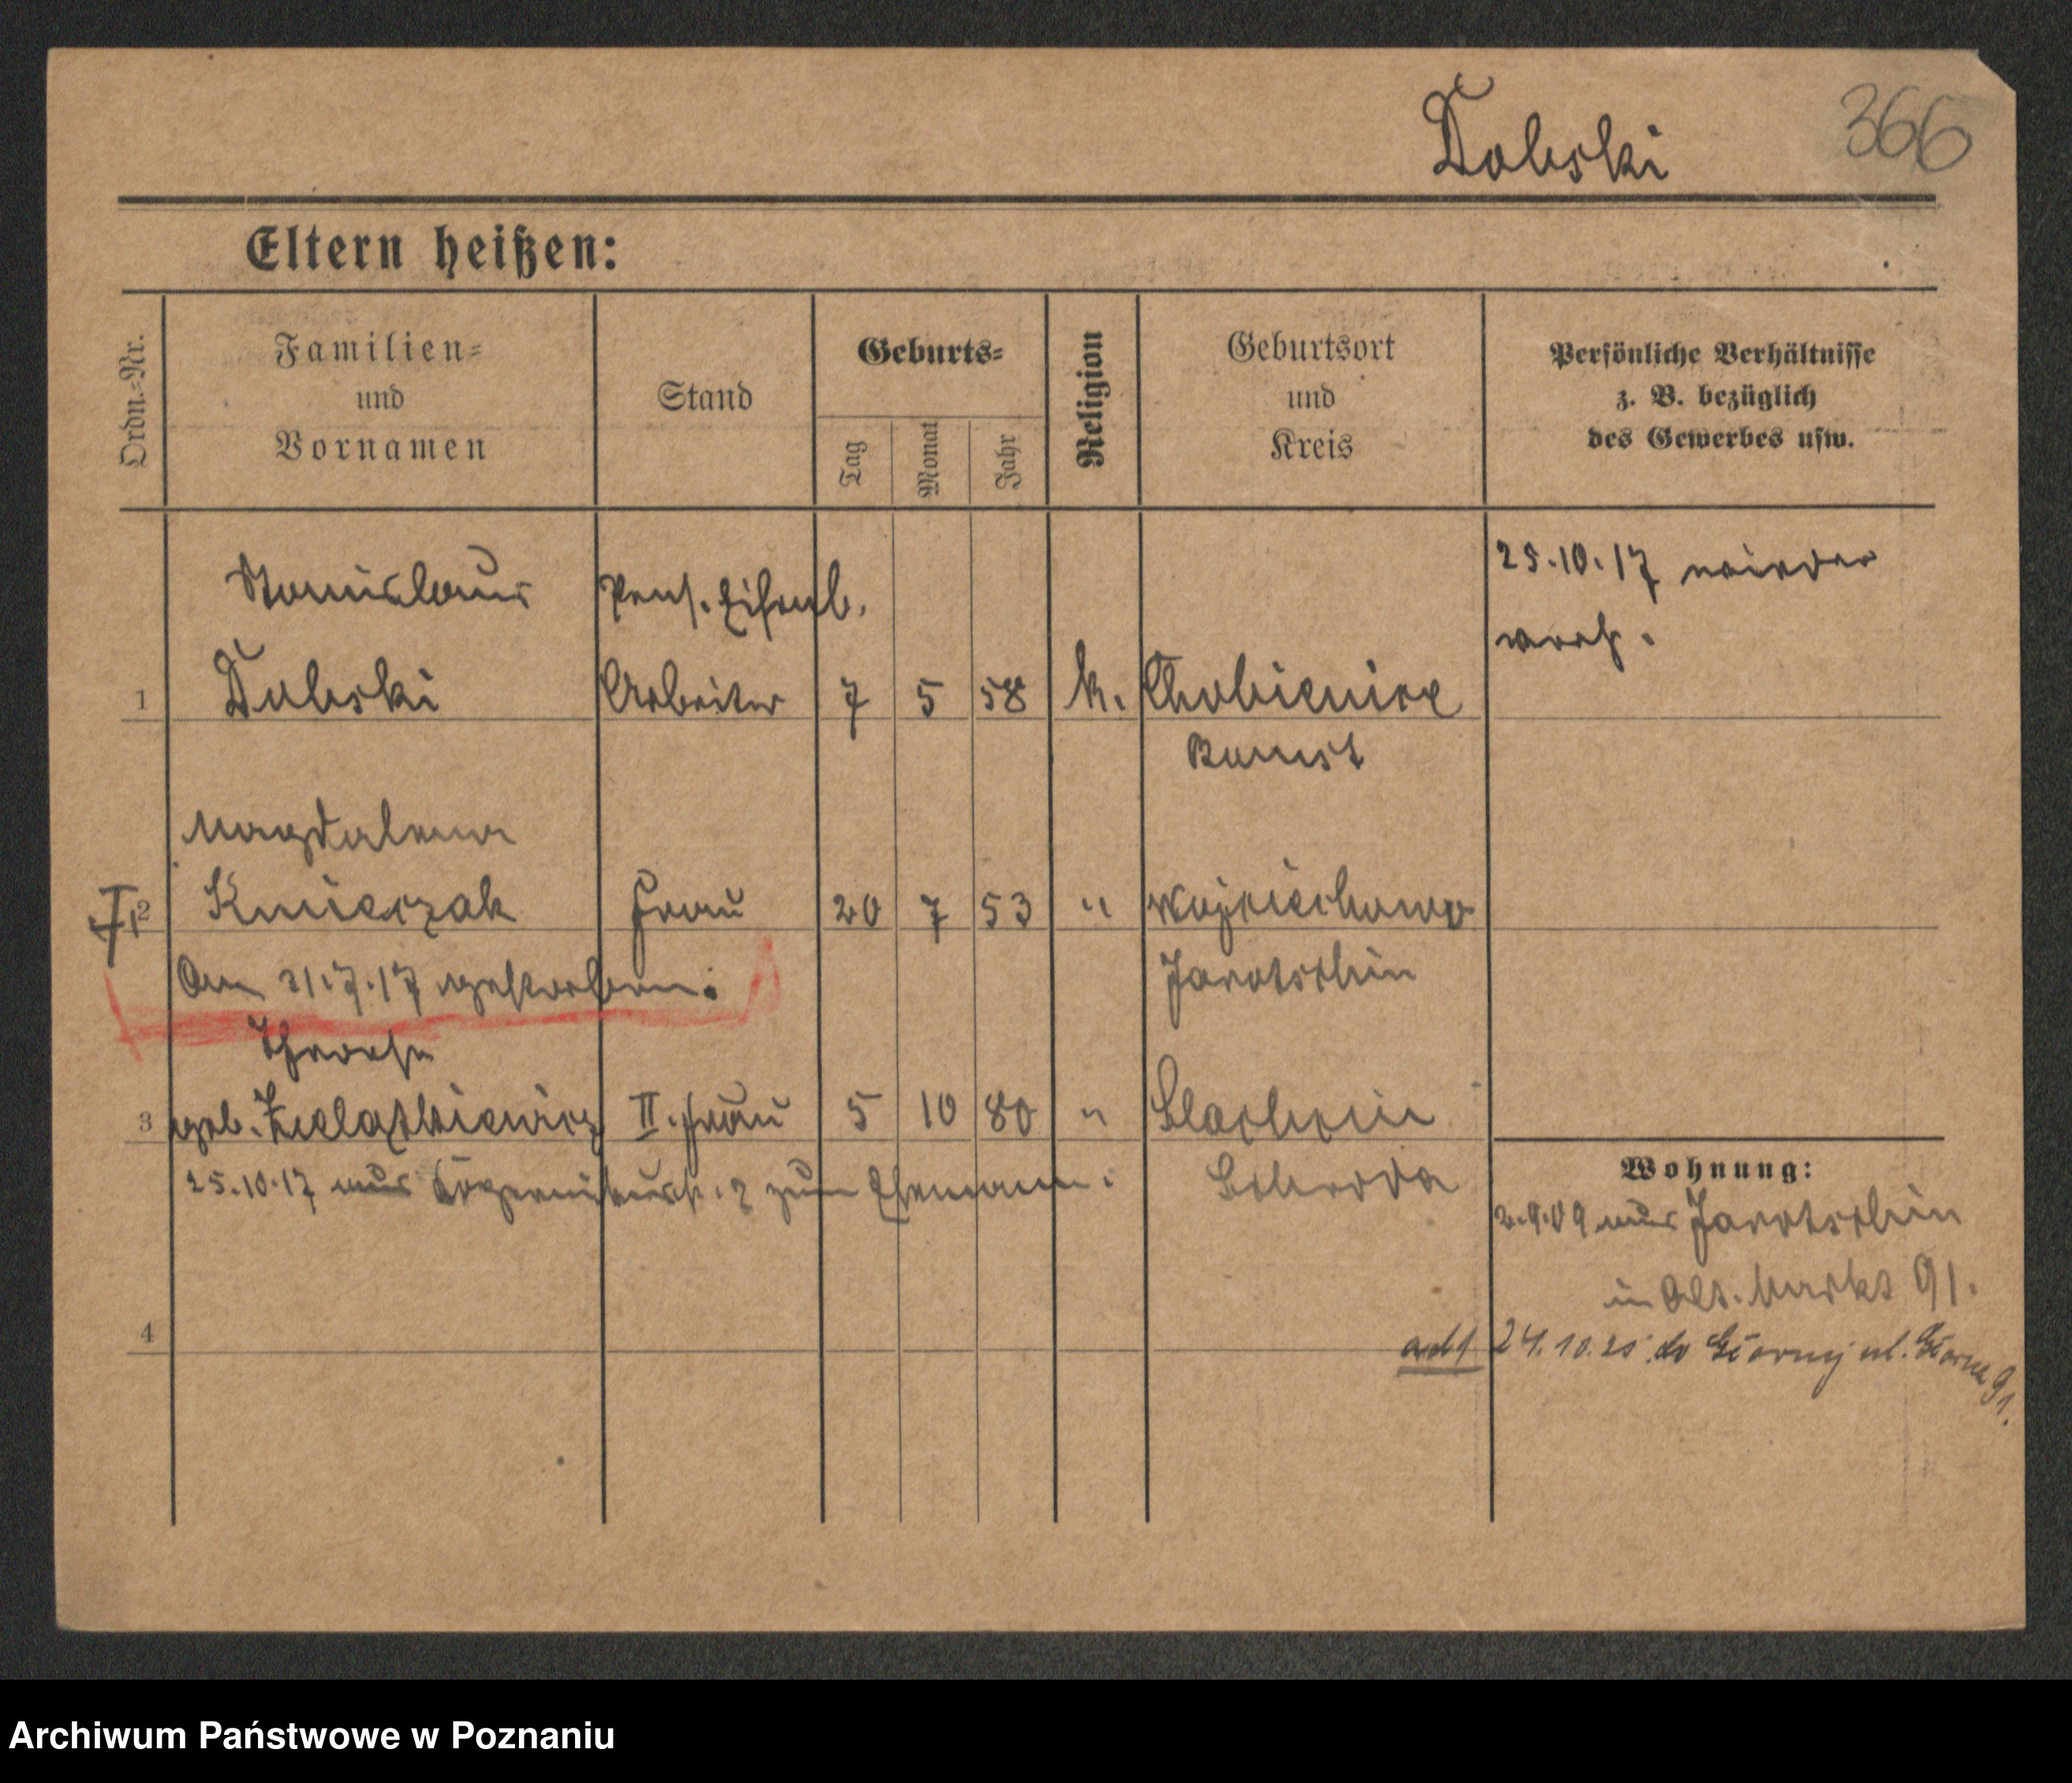 Dobski 366
Eltern heißen:
Ordn.-Nr.
Familien-
und
Vornamen
Stand
Geburts-
Tag
Monat
Jahr
Religion
Geburtsort
und
Kreis
Persönliche Verhältnisse
z. B. bezüglich
des Gewerbes usw.
Stanislaus Pens. Eisenb. 25.10.17 wieder
verh.
1 Dobski Arbeiter 7 5 58 k. Chobienice
Bomst
Magdalena
2 Kmieczak Frau 20 7 53 " Wojciechowo
Am 31.7.17 gestorben. Jarotschin
Therese
3 geb. II. Frau 5 10 80 " Slachcin
25.10.17 aus 2 zum Ehemann. Schroda
Wohnung:
2.9.09 aus Jarotschin
in Alt. Markt 91.
4
ad 1 24.10.25 do ul. 91.
Archiwum Państwowe w Poznaniu